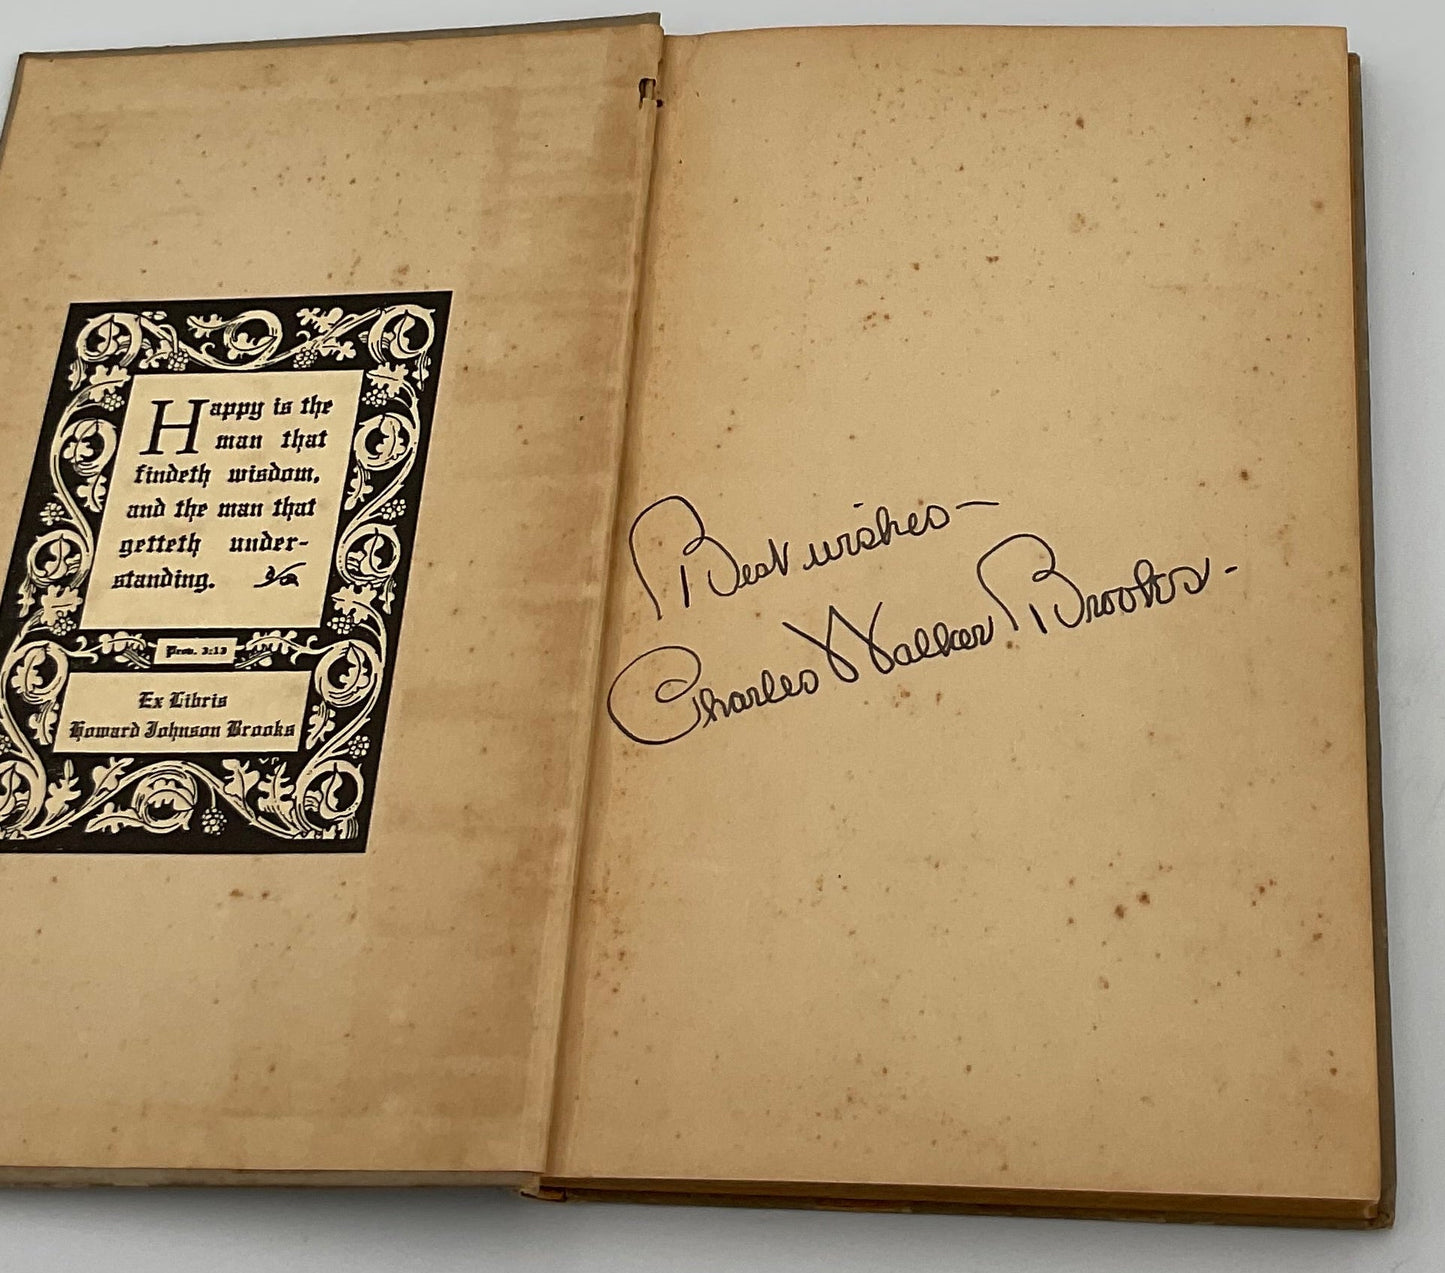 Happy is the
man that
findeth wisdom,
and the man that
getteth under-
standing.
Prov. 3:13
Ex Libris
Howard Johnson Brooks
VP
Best wishes—
Charles Walker Brooks-